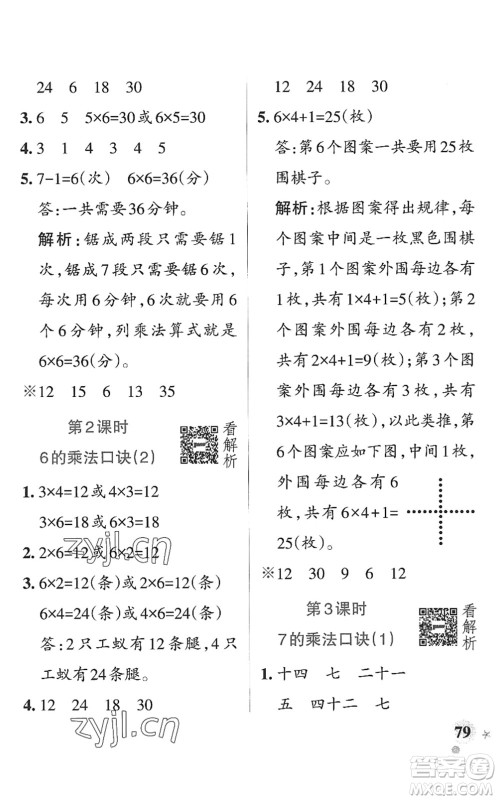 24 6 18 30
3. 6 5 5×6=30或6×5=30
4. 3 1 4 3 5
5. 7-1=6(次) 6×6=36(分)
答:一共需要36分钟。
解析:锯成两段只需要锯1
次,锯成7段只需要锯6次,
每次用6分钟,也就是6个
6分钟,列乘法算式就是
6×6=36(分)。
※12 15 6 13 35
第2课时
6的乘法口诀(2)
看解析
1. 3×4=12或4×3=12
3×6=18或6×3=18
2. 2×6=12或6×2=12
3. 6×2=12(条)或2×6=12(条)
6×4=24(条)或4×6=24(条)
答:2只工蚁有12条腿,4只
工蚁有24条腿。
4. 12 24 18 30
12 24 18 30
5. 6×4+1=25(枚)
答:第6个图案一共要用25枚
围棋子。
解析:根据图案得出规律,每
个图案中间是一枚黑色围棋
子,第1个图案外围每边各有
1枚,共有1×4+1=5(枚);第2
个图案外围每边各有2枚,共
有2×4+1=9(枚);第3个图
案外围每边各有3枚,共有
3×4+1=13(枚)。以此类推,
第6个图案应如下图,中间有
1枚,外围每边各有6
枚,共有6×4+1=
25(枚)。
※12 30 9 6 12
第3课时
7的乘法口诀(1)
看解析
1. 十四 七 二十一
五 四十二 七
79
zyjl.cn
zyjl.cn